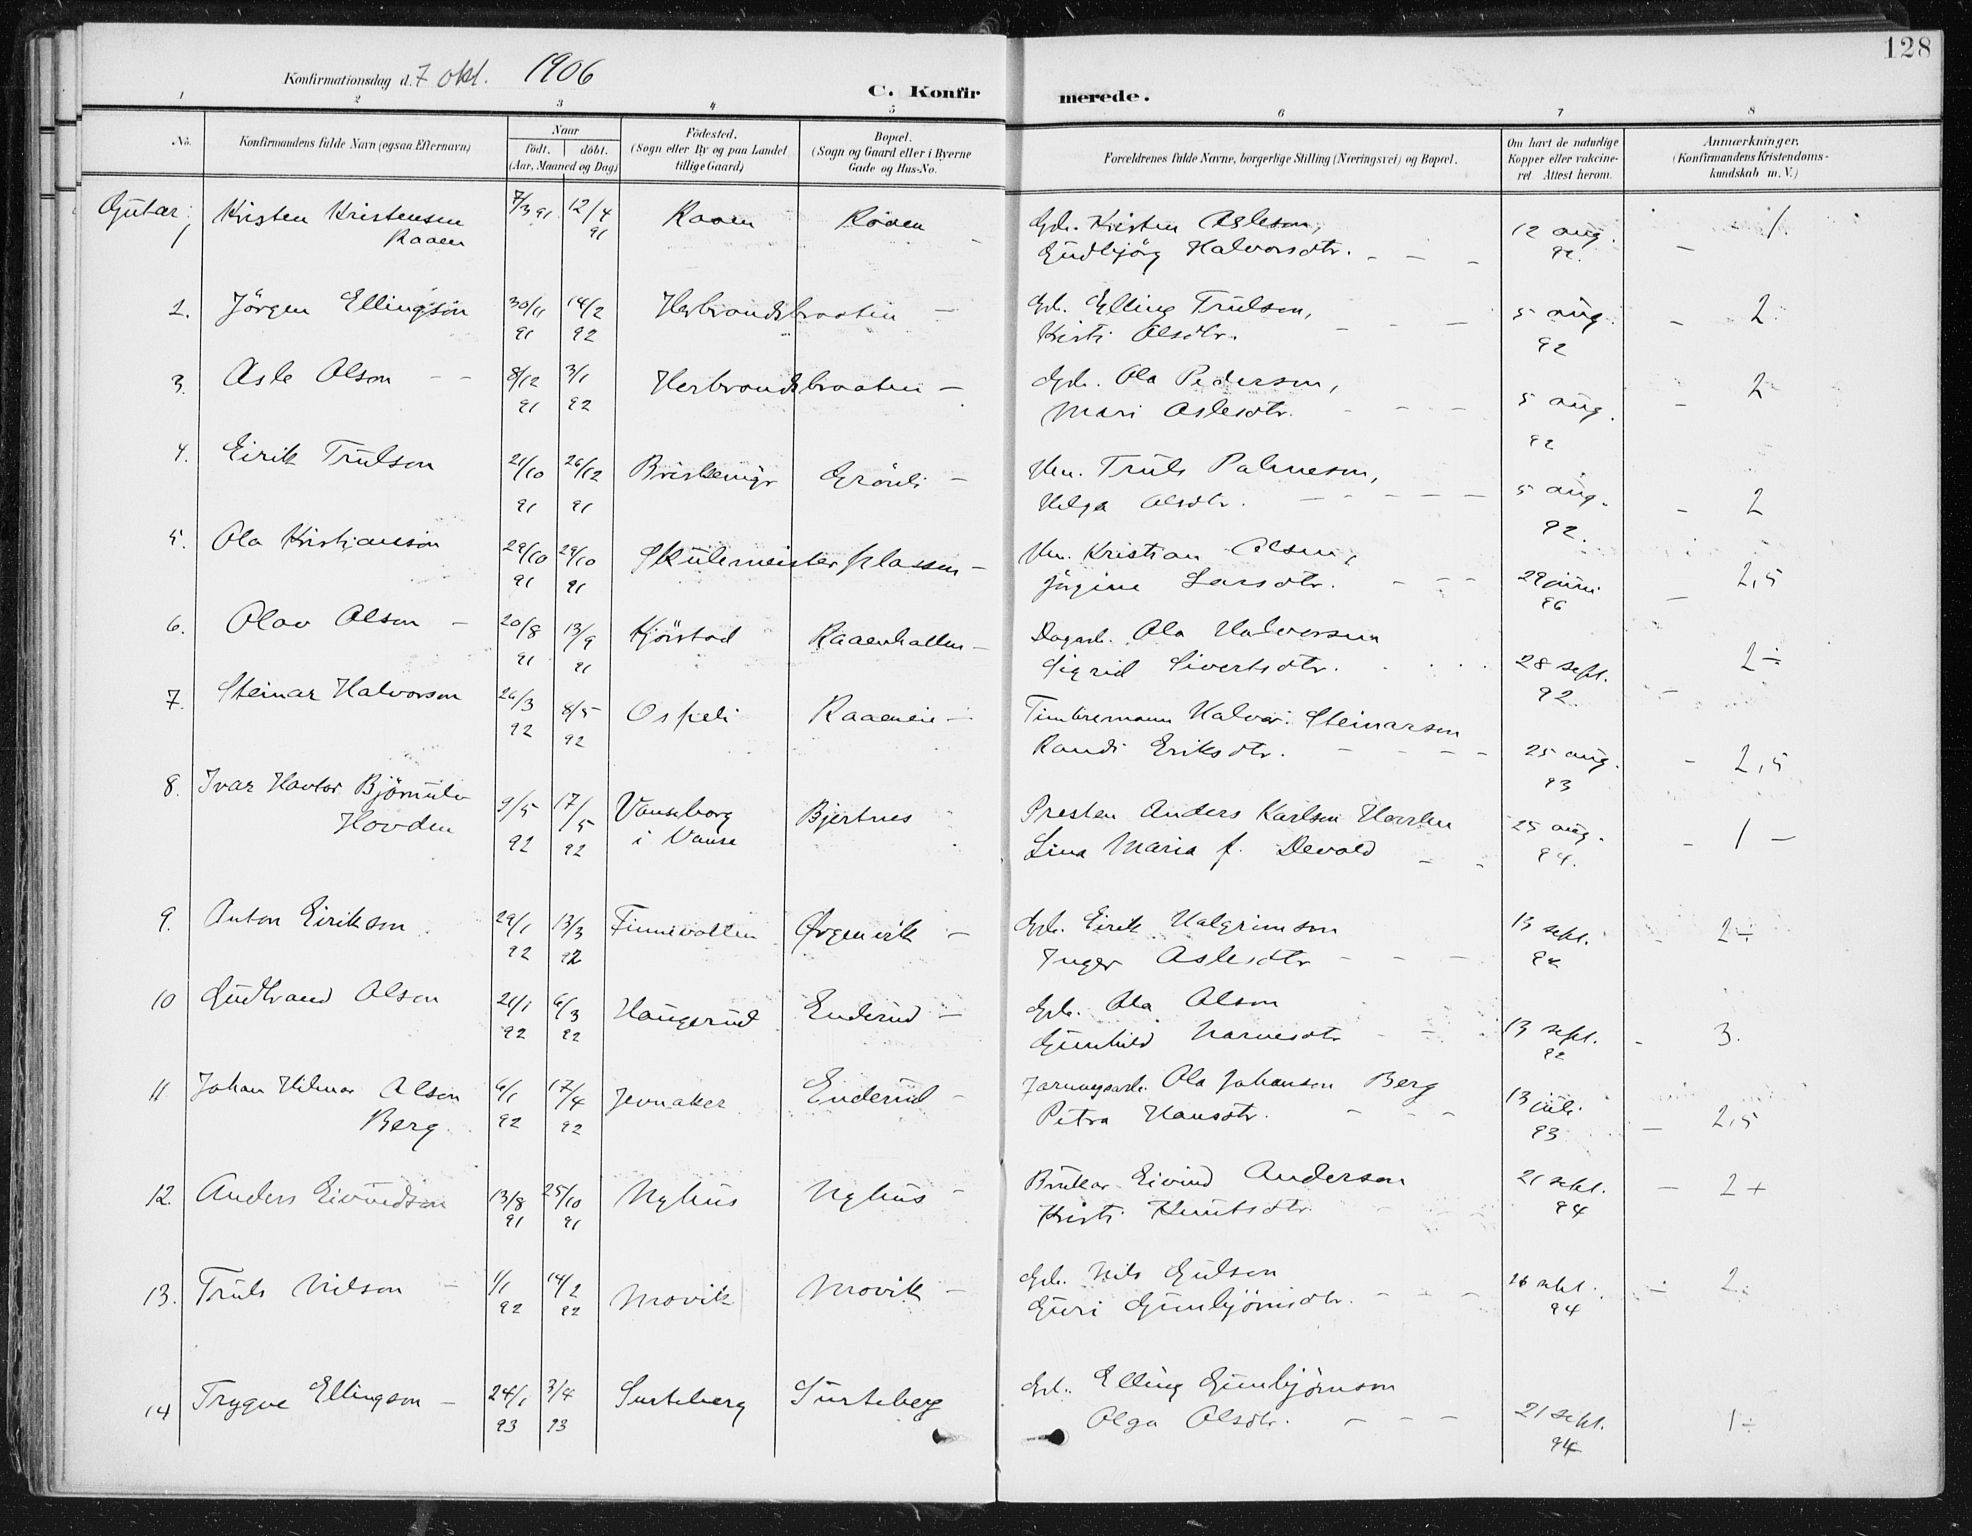 128
Konfirmationsdag d. 7 okt. 1906
C. Konfirmerede.
1 2 3 4 5 6 7 8
No.
Konfirmandens fulde Navn (ogsaa Efternavn)
Naar
födt. döbt.
(Aar, Maaned og Dag)
Födested.
(Sogn eller By og paa Landet
tillige Gaard)
Bopæl.
(Sogn og Gaard eller i Byerne
Gade og Hus-No.
Forældrenes fulde Navne, borgerlige Stilling (Næringsvei) og Bopæl.
Om havt de naturlige
Kopper eller vakcine-
ret Attest herom.
Anmærkninger.
(Konfirmandens Kristendoms-
kundskab m. V.)
Gutar;
1 Kristen Kristensen 7/3 91 12/4 Raaen Raaen Gbr. Kristen Asleson, 12 aug. 1.
Raaen 91 Gudbjörg Halvorsdtr. 92.
2. Jörgen Ellingson 30/11 14/2 Herbrandsbraaten Gbr. Elling Trulson, 5 aug. 2
91 92 Kristi Olsdtr. 92
3. Asle Olson 8/12 3/1 Herbrandsbraaten Gbr. Ola Pederson, 5 aug. 2-
91 92 Mari Aslesdtr. 92
4. Eirik Trulson 21/10 26/12 Briskemyr Grönli Hm. Truls Palmeson, 5 aug. 2
91 91 Helga Olsdtr. 92.
5. Ola Kristianson 29/10 29/10 Skulemeisterplassen Hm. Kristian Olson, 29 juni 2,5
91 91 Jörgine Larsdtr. 96
6. Olav Olson 20/8 13/9 Kjörstad Raaenhallen Dagarb. Ola Halvorson 28 sept. 2÷
91 91 Sigrid Sivertsdtr. 92.
7. Steinar Halvorson 26/3 8/5 Ospeli Raaeneie Timbremann Halvor Steinarson 25 aug. 2,5
92 92 Randi Eriksdtr. 93
8. Ivar Havtor Bjørnulv 9/5 17/5 Vanseborg Bjertnes Presten Anders Karlson Hovden 25 aug. 1 -
Hovden 92 92 i Vanse Lina Maria f. Devold 94.
9. Anton Eirikson 29/1 13/3 Finnevollen Ørgenvik Gbr. Eirik Halgrimson 13 sept. 2÷
92 92 Inger Aslesdtr
10 Gudbrand Olson 21/1 6/3 Haugerud Enderud Gbr. Ola Olson 13 sept. 3.
92 92 Gunhild Narvesdtr 92
11 Johan Hilmar Olson 6/1 17/4 Jevnaker Enderud Jarnvegsarb. Ola Johanson Berg 13 juli 2,5
Berg 92 92 Petra Hansdtr. 93
12. Anders Eivindson 13/8 25/10 Nyhus Nyhus Brukar Eivind Anderson 21 sept. 2+
91 91 Kristi Knutsdtr. 94
13. Truls Nilson 1/1 14/2 Movik Movik Gbr. Nils Gulson 26 sept. 2.
92 92 Guri Gunbjörnsdtr. 94
14 Trygve Ellingson 24/1 3/4 Surteberg Surteberg Gbr. Elling Gunbjörnson 21 sept. 1÷
93 93 Olga Olsdtr. 94